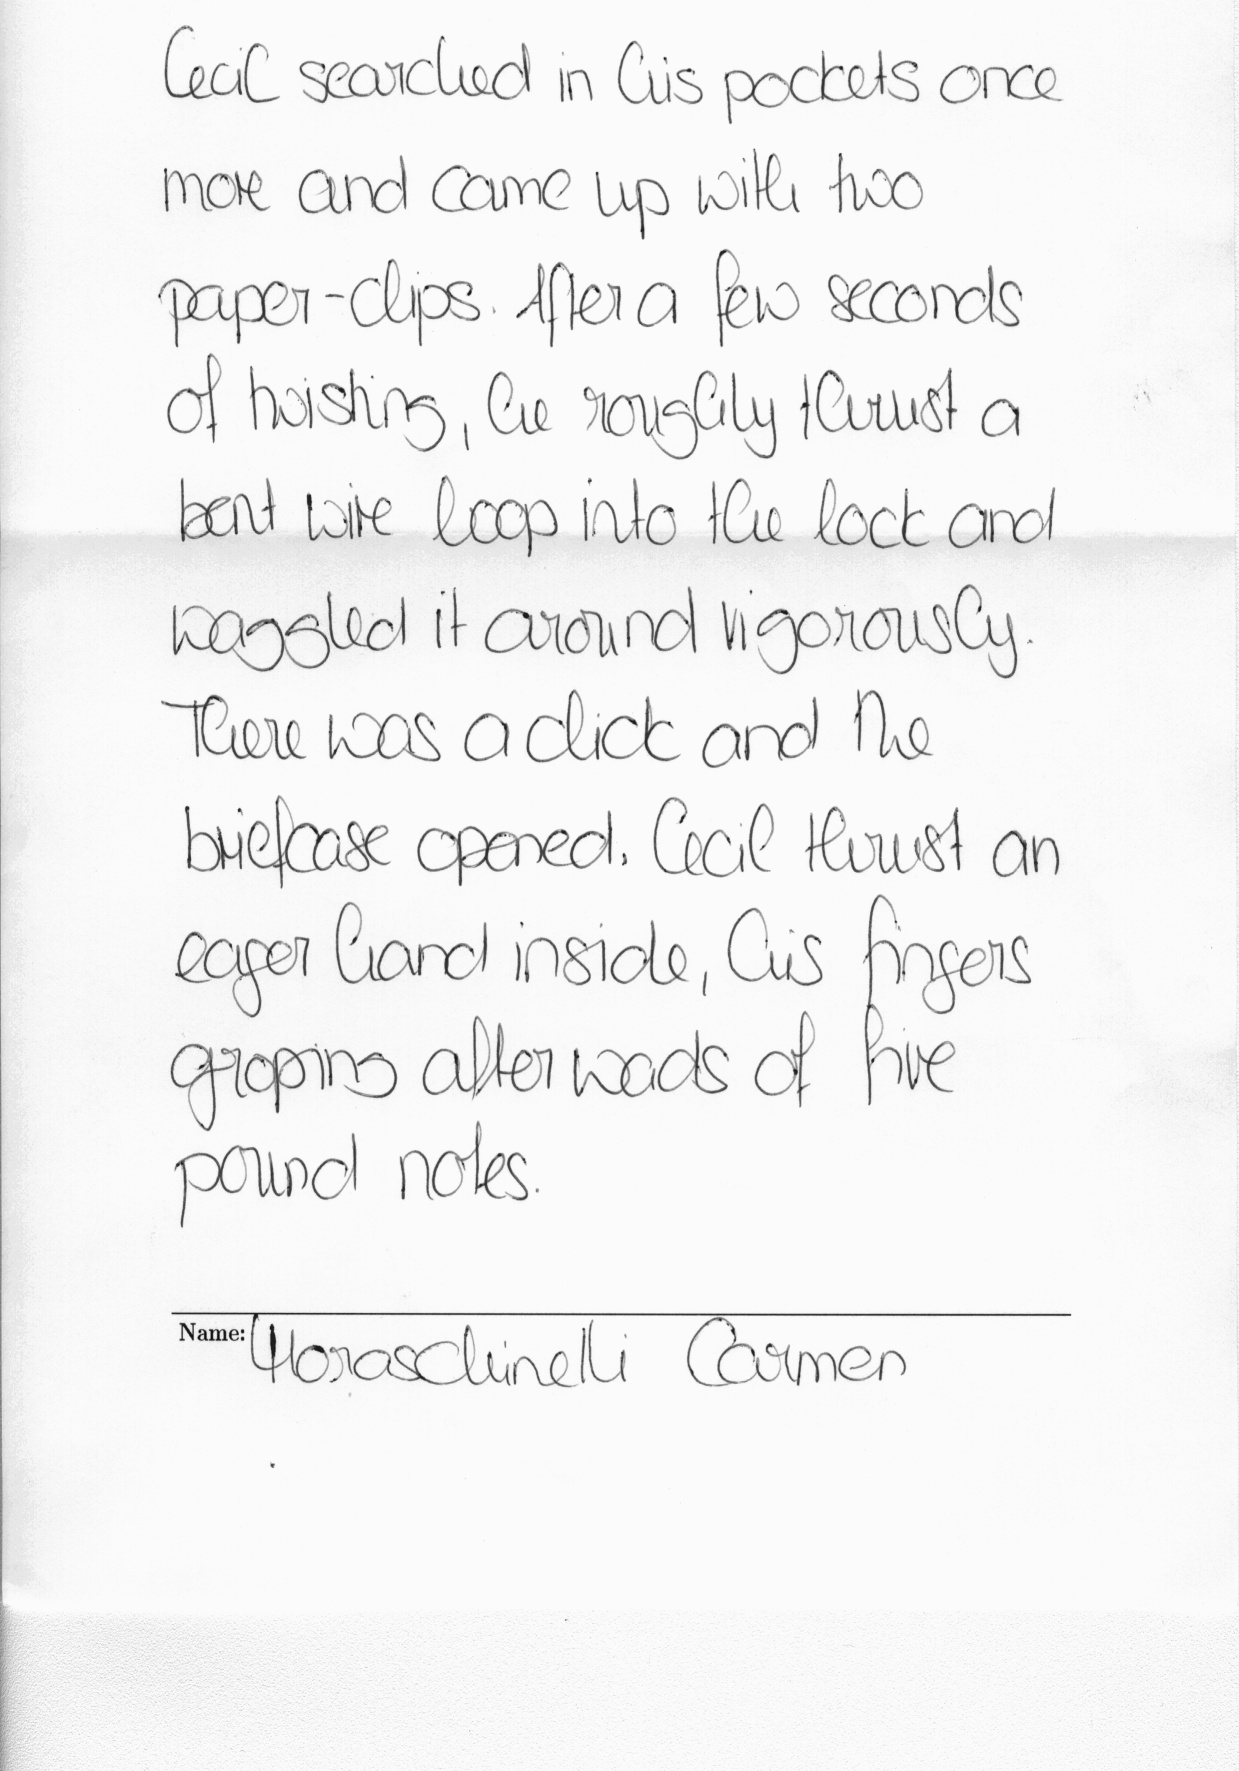 Cecil searched in his pockets once
more and came up with two
paper-clips. After a few seconds
of twisting, he roughly thrust a
bent wire loop into the lock and
waggled it around vigorously.
There was a click and the
briefcase opened. Cecil thrust an
eager hand inside, his fingers
groping after wads of five
pound notes.
Name: Moraschinelli Carmen